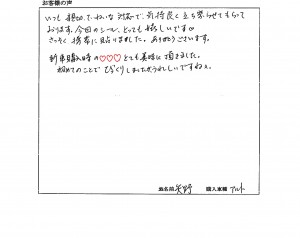 お客様の声
いつも親切、ていねいな対応で、気持良く立ち寄らせてもらって
おります。今回のシール、とっても嬉しいです♡
さっそく携帯に貼りました。ありがとうございます。
新車購入時の♡♡♡とても美味に頂きました。
初めてのことでびっくりしましたがうれしいですねぇ。
お名前 矢野 購入車種 アルト